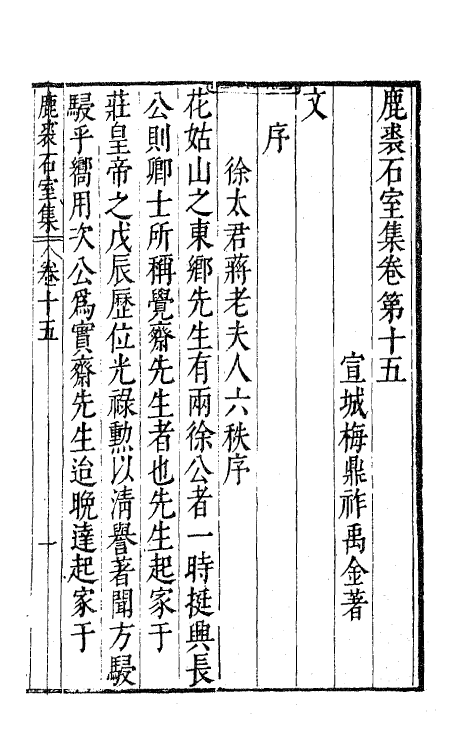 鹿裘石室集卷第十五
宣城梅鼎祚禹金著
文
序
徐太君蔣老夫人六秩序
花姑山之東鄉先生有兩徐公者一時挺興長
公則鄉士所稱覺齋先生者也先生起家于
莊皇帝之戊辰歷位光祿勲以清譽著聞方駸
駸乎嚮用次公爲實齋先生迨晚達起家于
鹿裘石室集 卷十五 一